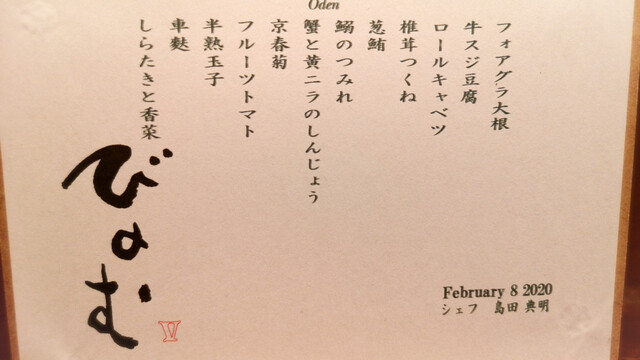 Oden
フォアグラ大根
牛スジ豆腐
ロールキャベツ
椎茸つくね
葱鮪
鰯のつみれ
蟹と黄ニラのしんじょう
京春菊
フルーツトマト
半熟玉子
車麩
しらたきと香菜
びよむ
V
February 8 2020
シェフ 島田 典明